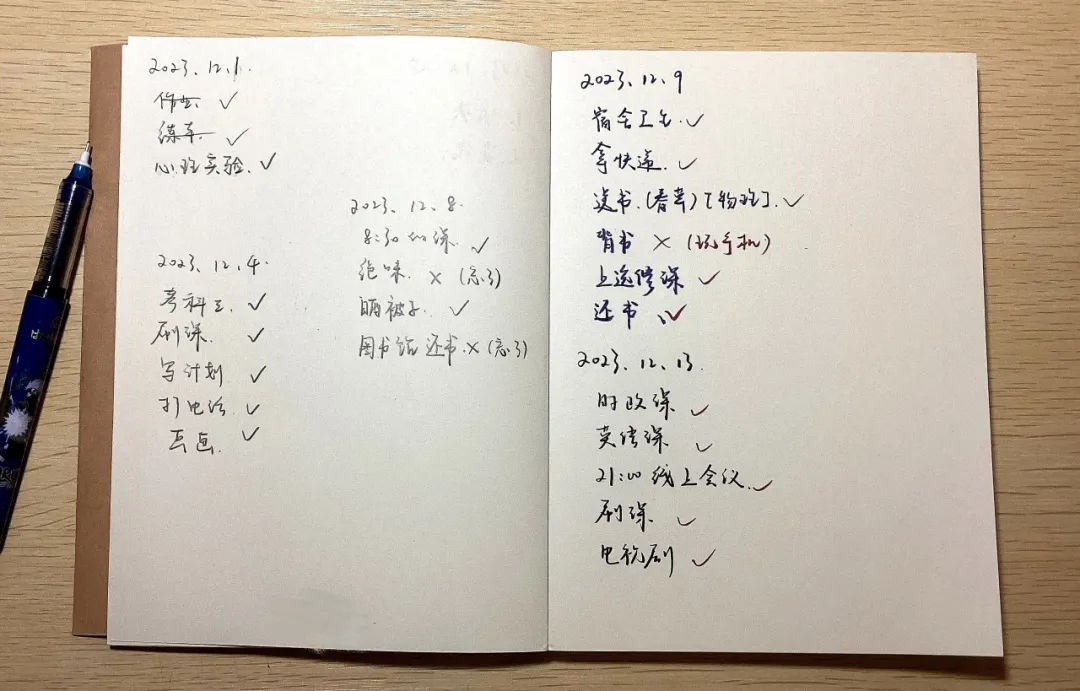 2023.12.1.
作业 ✓
练车. ✓
心理实验. ✓
2023.12.4.
考科三 ✓
刷课. ✓
写计划 ✓
打电话. ✓
画画. ✓
2023.12.8.
8:30 课. ✓
绝味. × (忘了)
晒被子. ✓
图书馆还书. × (忘了)
2023.12.9
宿舍卫生. ✓
拿快递. ✓
读书.(看剪)[物理]. ✓
背书 × (玩手机)
上选修课 ✓
还书 ✓
2023.12.13.
时政课 ✓
英传课 ✓
21:00 线上会议. ✓
刷课. ✓
电视剧 ✓